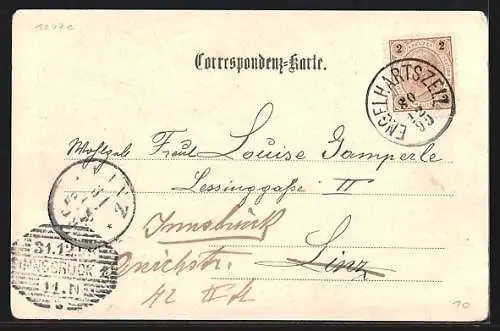 1247c
Correspondenz-Karte.
2 2
ENGELHARTSZELL
30
12
99
Wohlgeb Frul Louise Gamperle
Lessinggaße II
LINZ
Innsbruck
Linz
31.12
INNSBRUCK
11.N
42 II
10